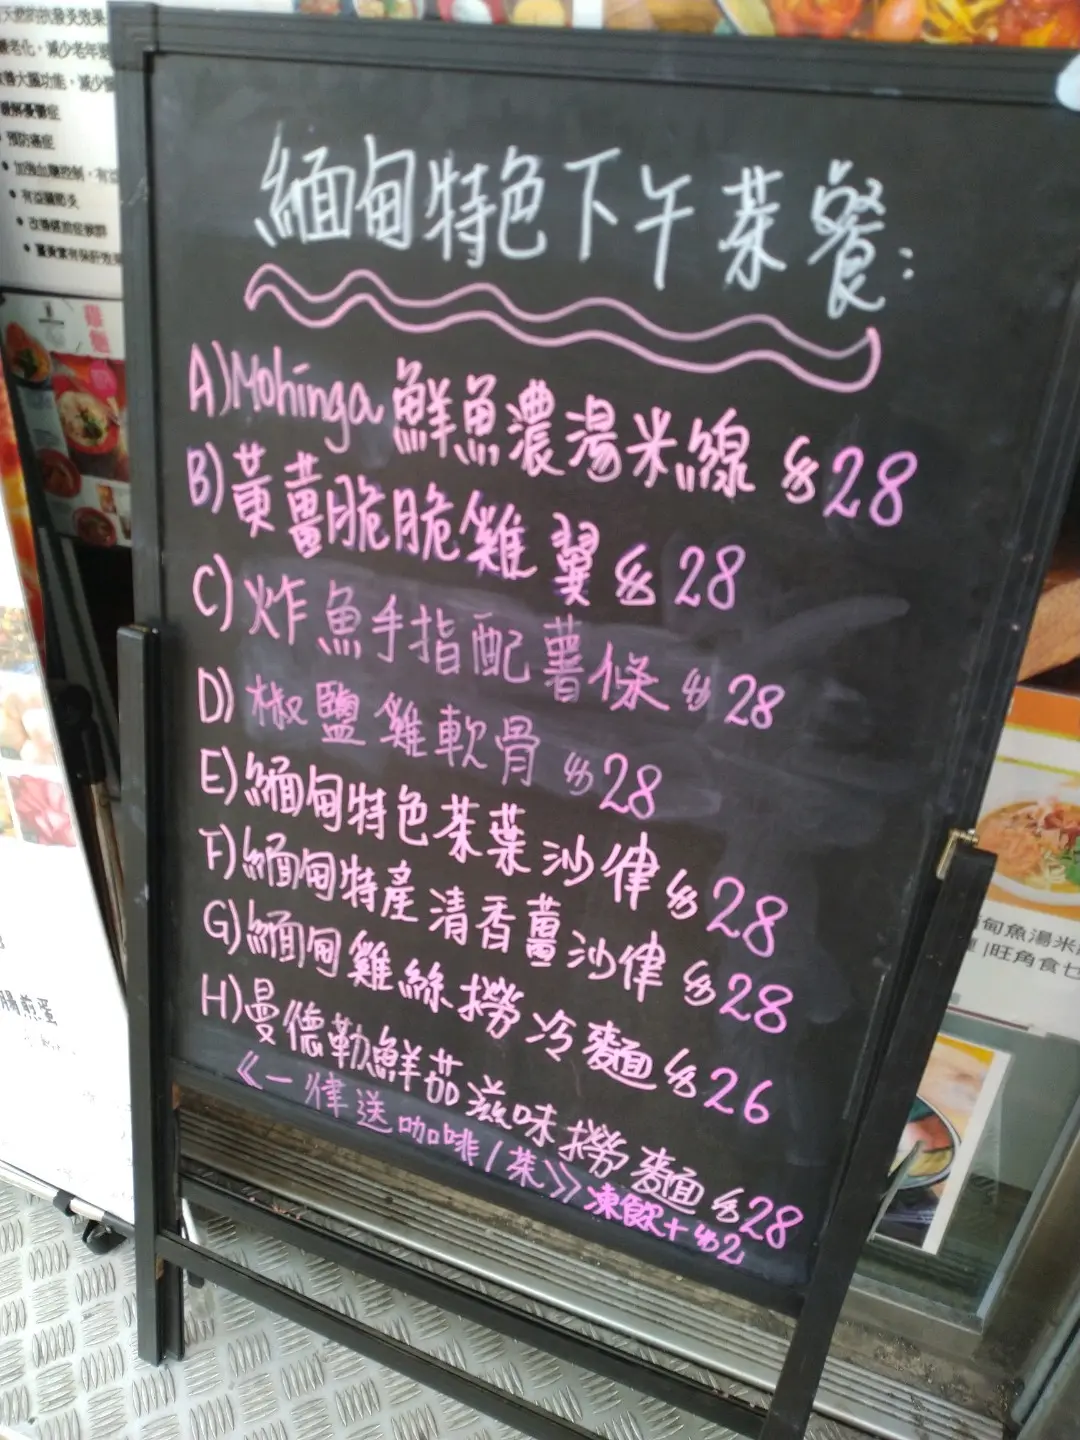 緬甸特色下午茶餐:
A)Mohinga 鮮魚濃湯米線 $28
B)黃薑脆脆雞翼 $28
C)炸魚手指配薯條 $28
D)椒鹽雞軟骨 $28
E)緬甸特色茶葉沙律 $28
F)緬甸特產清香薑沙律 $28
G)緬甸雞絲撈冷麵 $26
H)曼德勒鮮茄滋味撈麵 $28
《一律送咖啡/茶》凍飲+$2
減少老年
預防癌症
腸煎蛋
甸魚湯米
旺角食